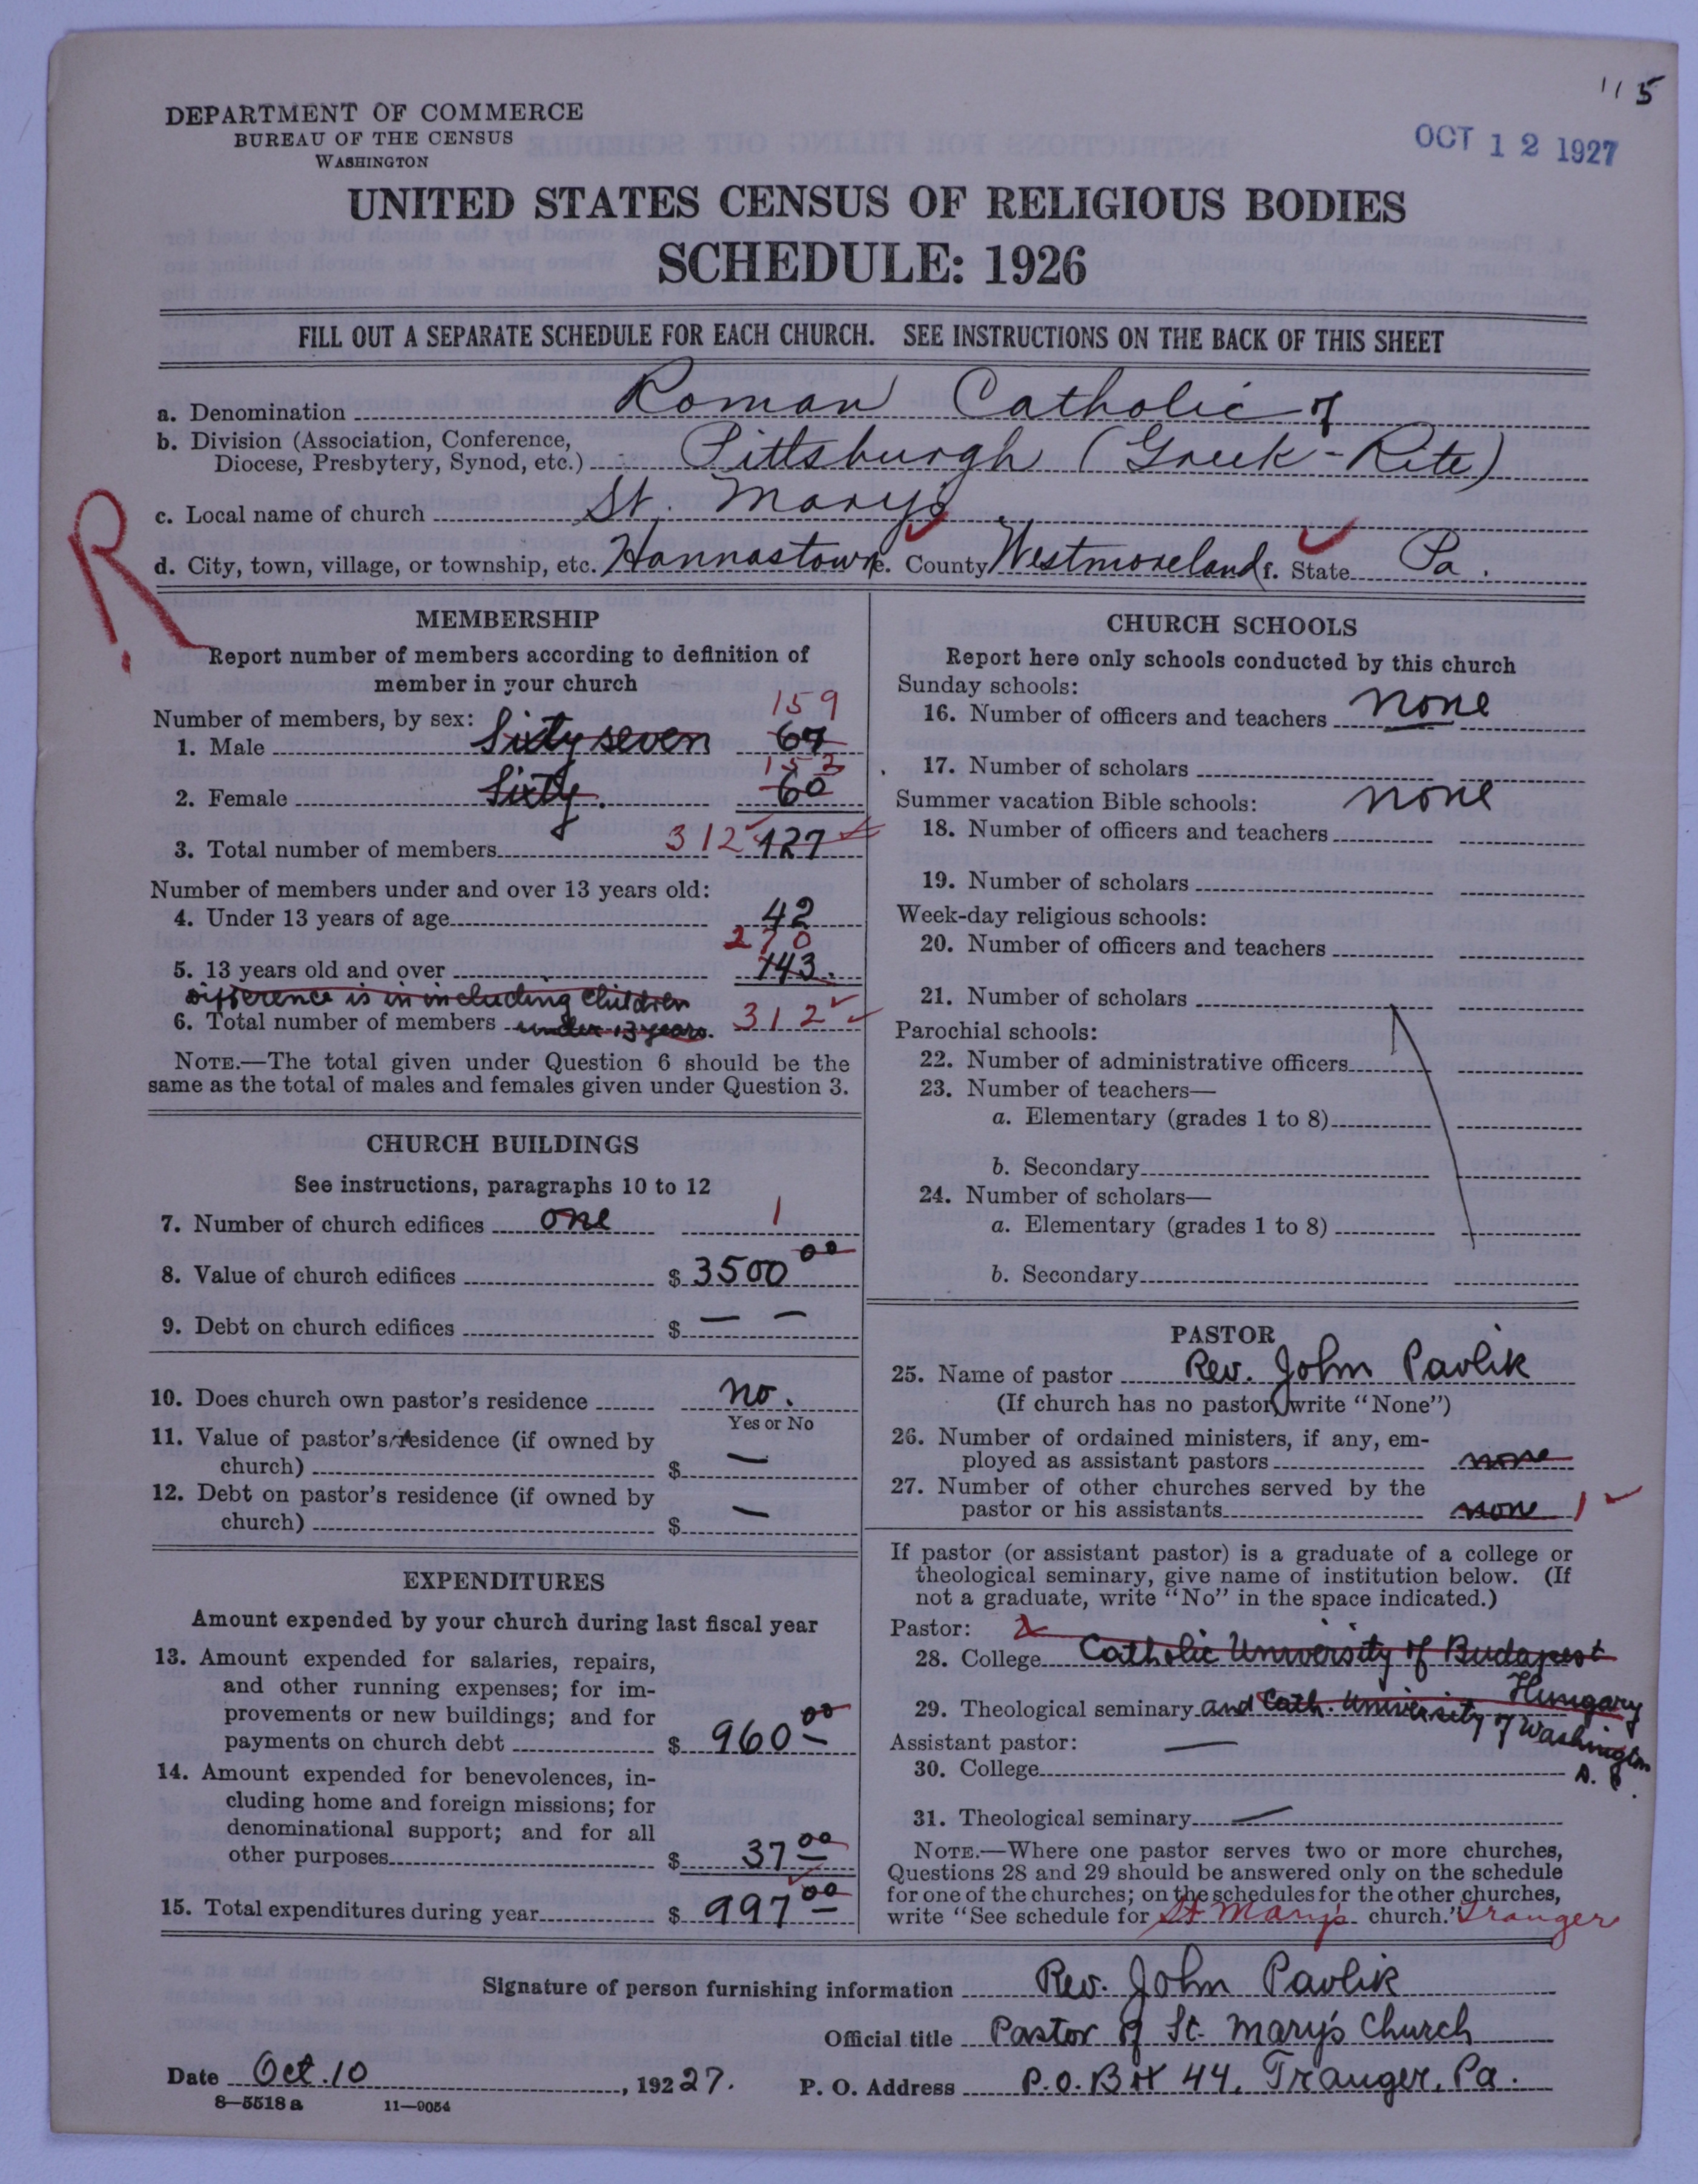 115
DEPARTMENT OF COMMERCE
BUREAU OF THE CENSUS
WASHINGTON
OCT 12 1927
UNITED STATES CENSUS OF RELIGIOUS BODIES
SCHEDULE: 1926
FILL OUT A SEPARATE SCHEDULE FOR EACH CHURCH. SEE INSTRUCTIONS ON THE BACK OF THIS SHEET
a. Denomination Roman Catholic of
b. Division (Association, Conference,
Diocese, Presbytery, Synod, etc.) Pittsburgh (Greek-Rite)
c. Local name of church St. Mary's
d. City, town, village, or township, etc. Hannastown e. County Westmoreland f. State Pa.
R
MEMBERSHIP
Report number of members according to definition of
member in your church
Number of members, by sex: 159
1. Male Sixty seven 67
153
2. Female Sixty. 60
3. Total number of members 312 127
Number of members under and over 13 years old:
4. Under 13 years of age 42
270
5. 13 years old and over 143.
Difference is in including children
6. Total number of members under 13 years. 312
NOTE.—The total given under Question 6 should be the
same as the total of males and females given under Question 3.
CHURCH BUILDINGS
See instructions, paragraphs 10 to 12
7. Number of church edifices one 1
8. Value of church edifices $ 3500 00
9. Debt on church edifices $ — —
10. Does church own pastor's residence no.
Yes or No
11. Value of pastor's residence (if owned by
church) $ —
12. Debt on pastor's residence (if owned by
church) $ —
EXPENDITURES
Amount expended by your church during last fiscal year
13. Amount expended for salaries, repairs,
and other running expenses; for im-
provements or new buildings; and for
payments on church debt $ 960 00
14. Amount expended for benevolences, in-
cluding home and foreign missions; for
denominational support; and for all
other purposes $ 37 00
15. Total expenditures during year $ 997 00
CHURCH SCHOOLS
Report here only schools conducted by this church
Sunday schools:
16. Number of officers and teachers none
17. Number of scholars
Summer vacation Bible schools: none
18. Number of officers and teachers
19. Number of scholars
Week-day religious schools:
20. Number of officers and teachers
21. Number of scholars
Parochial schools:
22. Number of administrative officers
23. Number of teachers—
a. Elementary (grades 1 to 8)
b. Secondary
24. Number of scholars—
a. Elementary (grades 1 to 8)
b. Secondary
PASTOR
25. Name of pastor Rev. John Pavlik
(If church has no pastor write "None")
26. Number of ordained ministers, if any, em-
ployed as assistant pastors none
27. Number of other churches served by the
pastor or his assistants none 1
If pastor (or assistant pastor) is a graduate of a college or
theological seminary, give name of institution below. (If
not a graduate, write "No" in the space indicated.)
Pastor: x
28. College Catholic University of Budapest
Hungary
29. Theological seminary and Cath. University of Washington
D.C.
Assistant pastor: —
30. College
31. Theological seminary —
NOTE.—Where one pastor serves two or more churches,
Questions 28 and 29 should be answered only on the schedule
for one of the churches; on the schedules for the other churches,
write "See schedule for St Mary's church." Tranger
Signature of person furnishing information Rev. John Pavlik
Official title Pastor of St. Mary's Church
Date Oct. 10, 192 27. P. O. Address P.O. Box 44, Trauger, Pa.
8—5518 a 11—9054